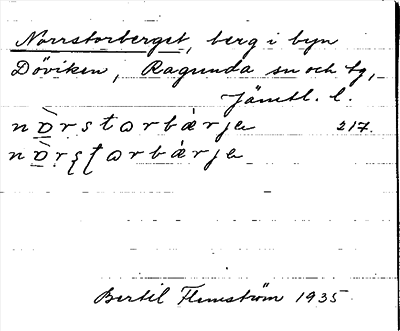 Norrstorberget, berg i byn
Döviken, Ragunda sn och tg,
Jämtl. l.
nòrstorbárjə 217.
nòrstorbárjə
Bertil Flemström 1935